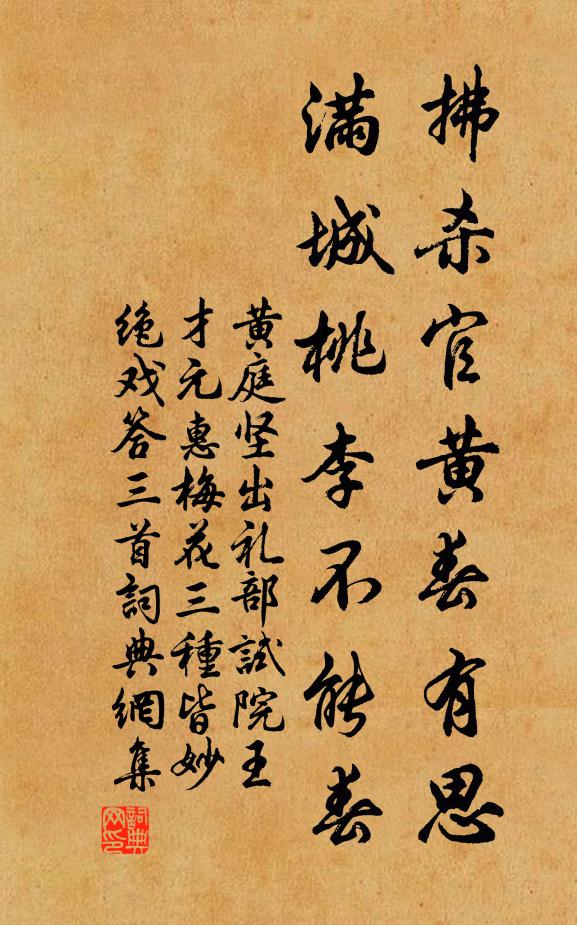 拂杀官黄春有思
满城桃李不能春
黄庭坚出礼部試院王
才元惠梅花三種皆妙
绝戏答三首詞典網集
詞典网印